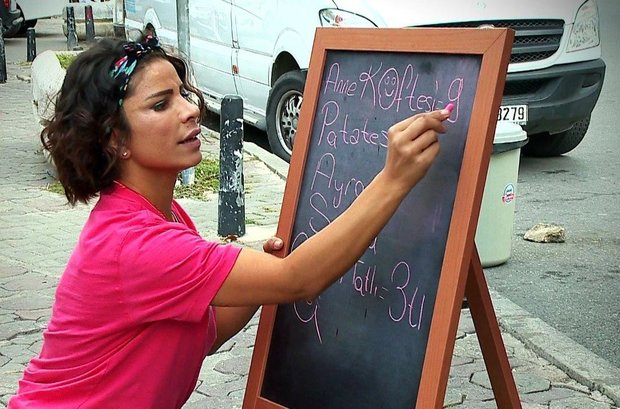 Anne Köftesi = 9
Patates
Ayra
S
Tatlı = 3TL
279